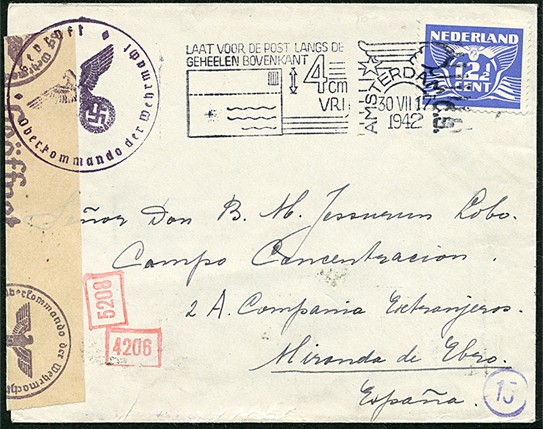 Geprüft
Oberkommando der Wehrmacht
LAAT VOOR DE POST LANGS DE
GEHEELEN BOVENKANT
4 cm
VRIJ
AMSTERDAM
30 VII 17
1942
NEDERLAND
12½
CENT
Geöffnet
Señor Don B. M. Jessurun Lobo.
Campo Concentracion.
2 A. Compania Extranjeros.
Miranda de Ebro.
España.
5208
4206
Oberkommando der Wehrmacht
15